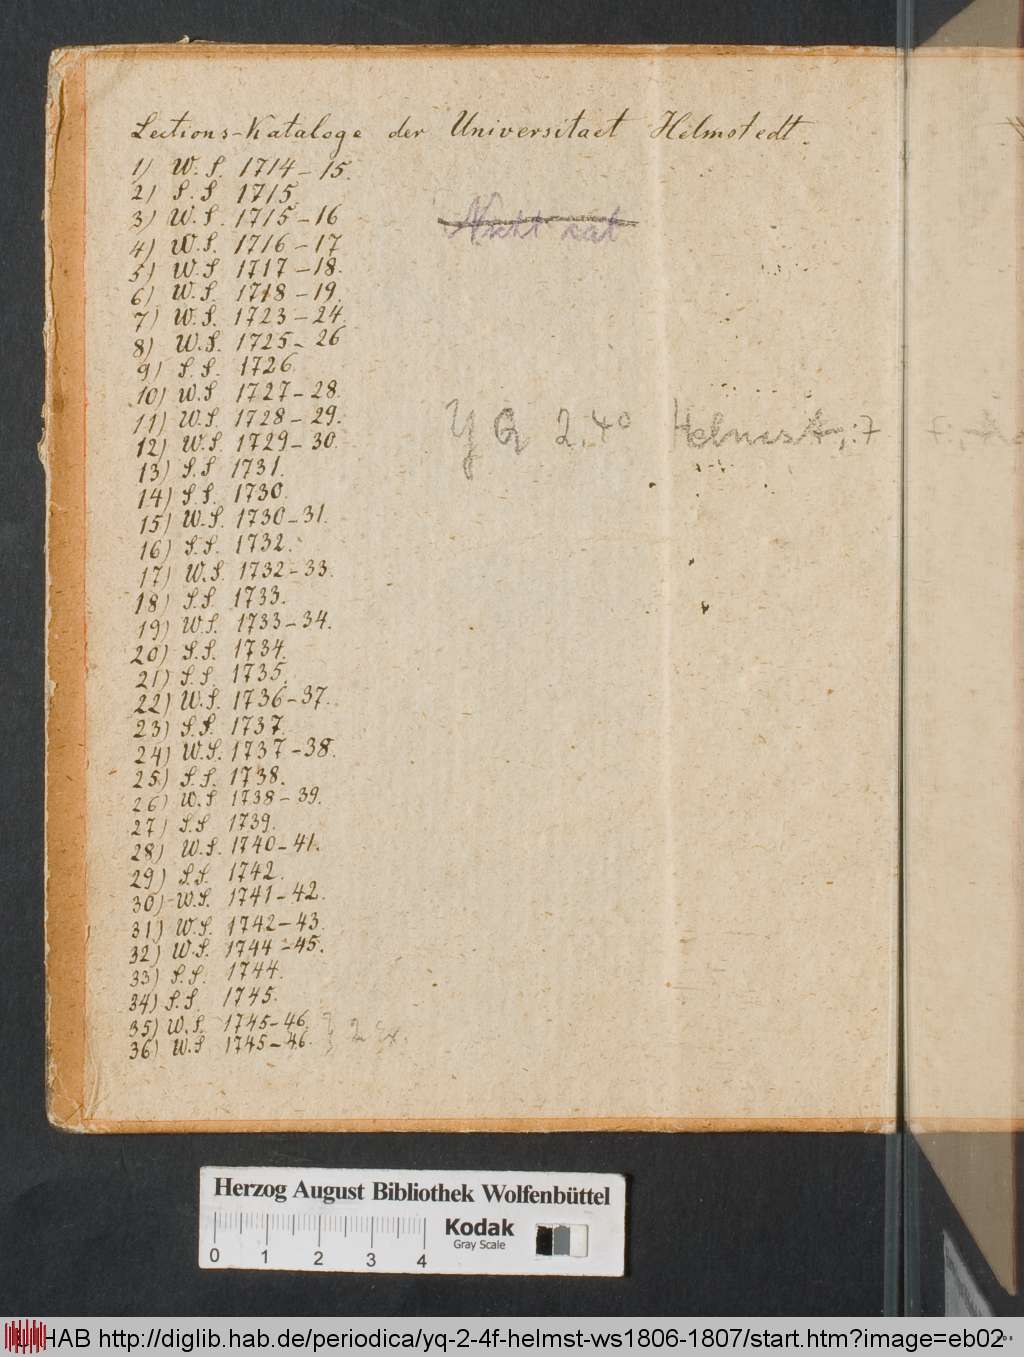 Lections-Kataloge der Universitaet Helmstedt.
1) W. S. 1714-15.
2) S. S 1715.
3) W. S. 1715-16
4) W. S. 1716-17
5) W. S 1717-18.
6) W. S. 1718-19.
7) W. S. 1723-24.
8) W. S. 1725-26
9) S. S. 1726.
10) W. S 1727-28.
11) W. S. 1728-29.
12) W. S. 1729-30.
13) S. S 1731.
14) S. S. 1730.
15) W. S. 1730-31.
16) S. S. 1732.
17) W. S. 1732-33.
18) S. S. 1733.
19) W. S. 1733-34.
20) S. S. 1734.
21) S. S. 1735.
22) W. S. 1736-37.
23) S. S. 1737.
24) W. S. 1737-38.
25) S. S. 1738.
26) W. S 1738-39.
27) S. S 1739.
28) W. S. 1740-41.
29) S. S. 1742.
30) W. S. 1741-42.
31) W. S. 1742-43.
32) W. S. 1744-45.
33) S. S. 1744.
34) S. S. 1745.
35) W. S. 1745-46.
36) W. S 1745-46. } 2 Ex.
Nicht kat
YQ 2.4° Helmst.:7
Herzog August Bibliothek Wolfenbüttel
0 1 2 3 4
Kodak
Gray Scale
HAB http://diglib.hab.de/periodica/yq-2-4f-helmst-ws1806-1807/start.htm?image=eb02